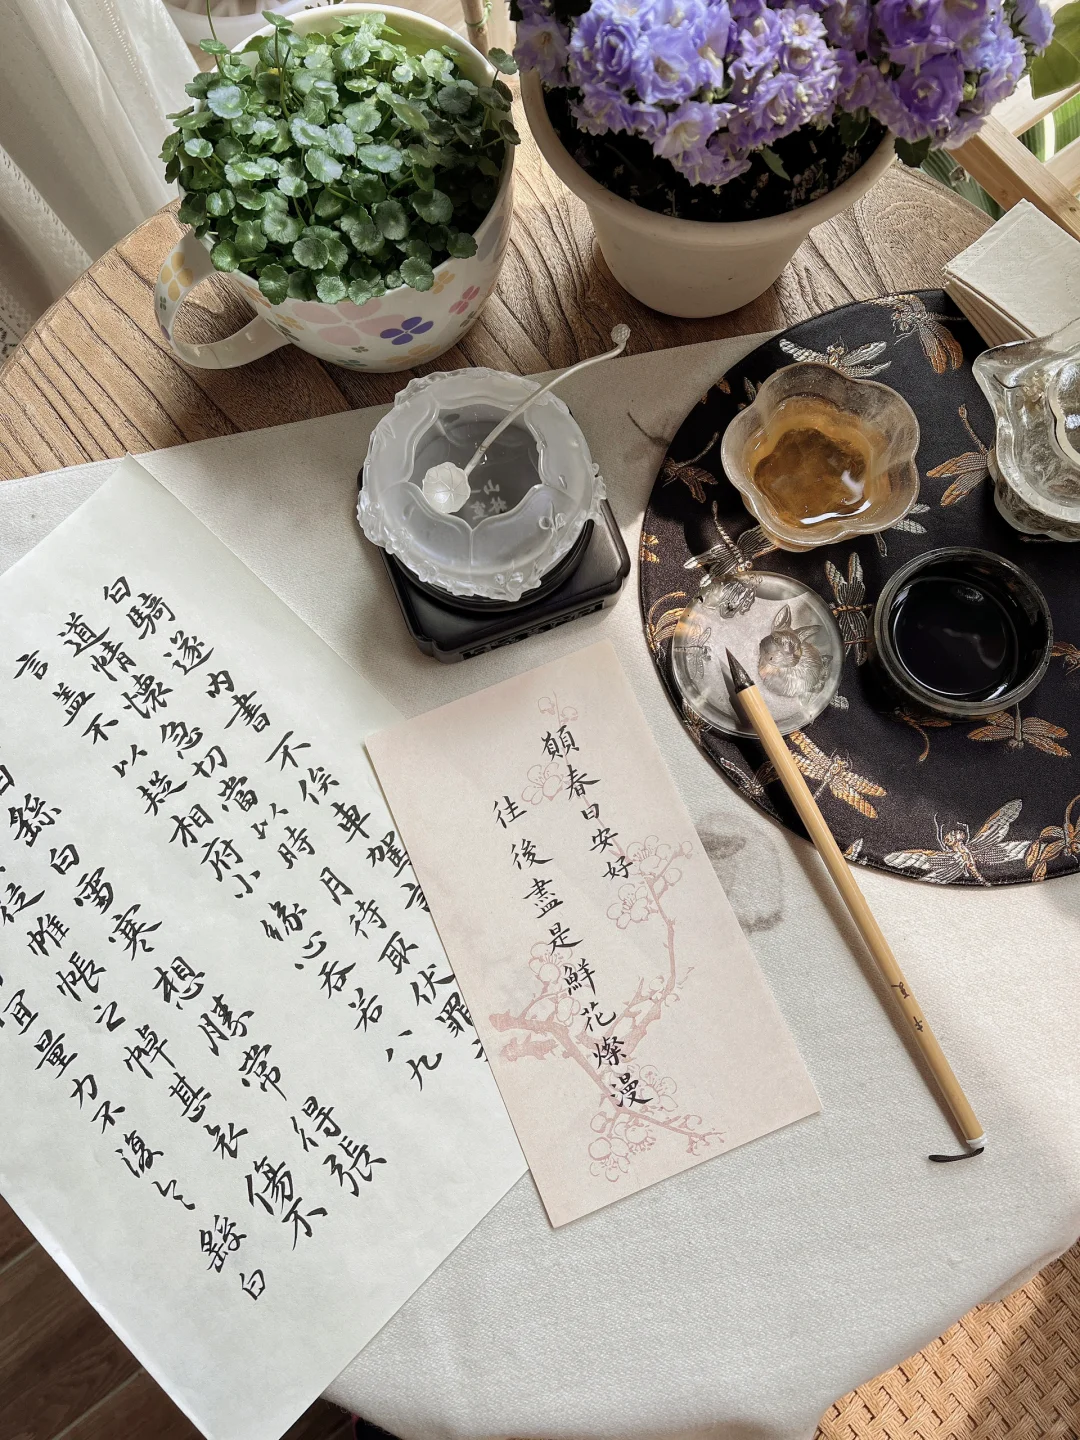 白騎遂內書不俟車駕
道情懷急切當以時月待取伏罪
言盖不以疑相府小緣心吞若八九
白
繇白雪寒想勝常得張
従帷帳之悼甚哀傷不
宜量力不復繇白
願春日安好
往後盡是鮮花燦漫